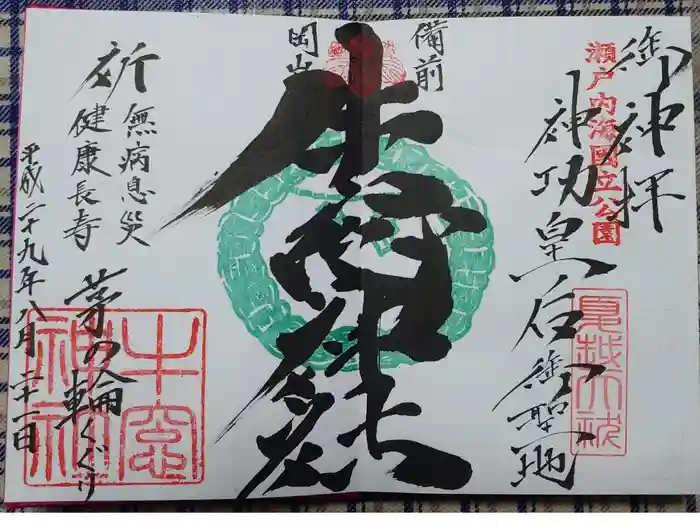 御神拝
瀬戸内海國立公園
神功皇后御聖地
備前
岡山
牛窓神社
祈
無病息災
健康長寿
茅の輪くぐり
平成二十九年八月二十一日
牛窓
神社